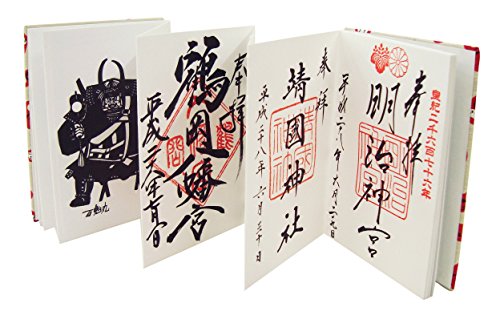 皇紀二千六百七十六年
奉拝
明治神宮
平成二十八年六月二十九日
奉拝
靖國神社
平成二十八年六月三十日
奉拝
鶴岡八幡宮